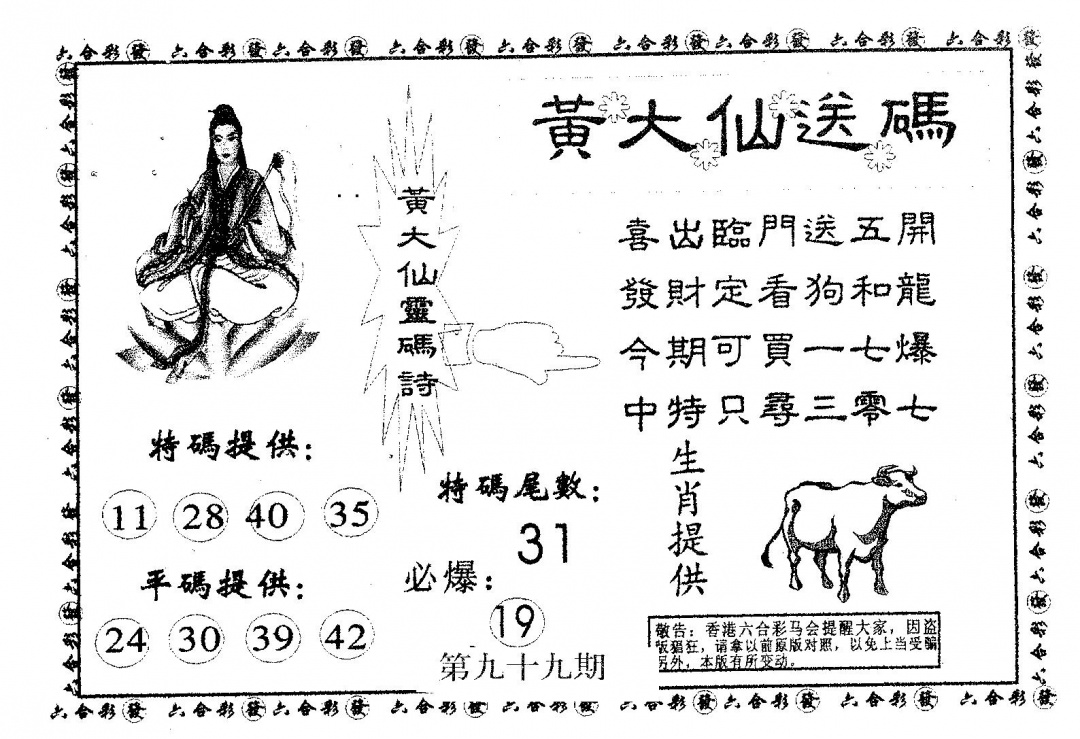 六合彩發 六合彩發六合彩發 六合彩發六合彩發 六合彩發六合彩發 六合彩發 六合彩發
黃大仙送碼
黃大仙靈碼詩
喜出臨門送五開
發財定看狗和龍
今期可買一七爆
中特只尋三零七
特碼提供：
11 28 40 35
平碼提供：
24 30 39 42
特碼尾數：
31
必爆：
19
第九十九期
生肖提供
敬告：香港六合彩马会提醒大家，因盗
版猖狂，请拿以前原版对照，以免上当受骗
另外，本版有所变动。
六合彩發 六合彩發六合彩發 六合彩發六合彩發 六合彩發六合彩發 六合彩發 六合彩發